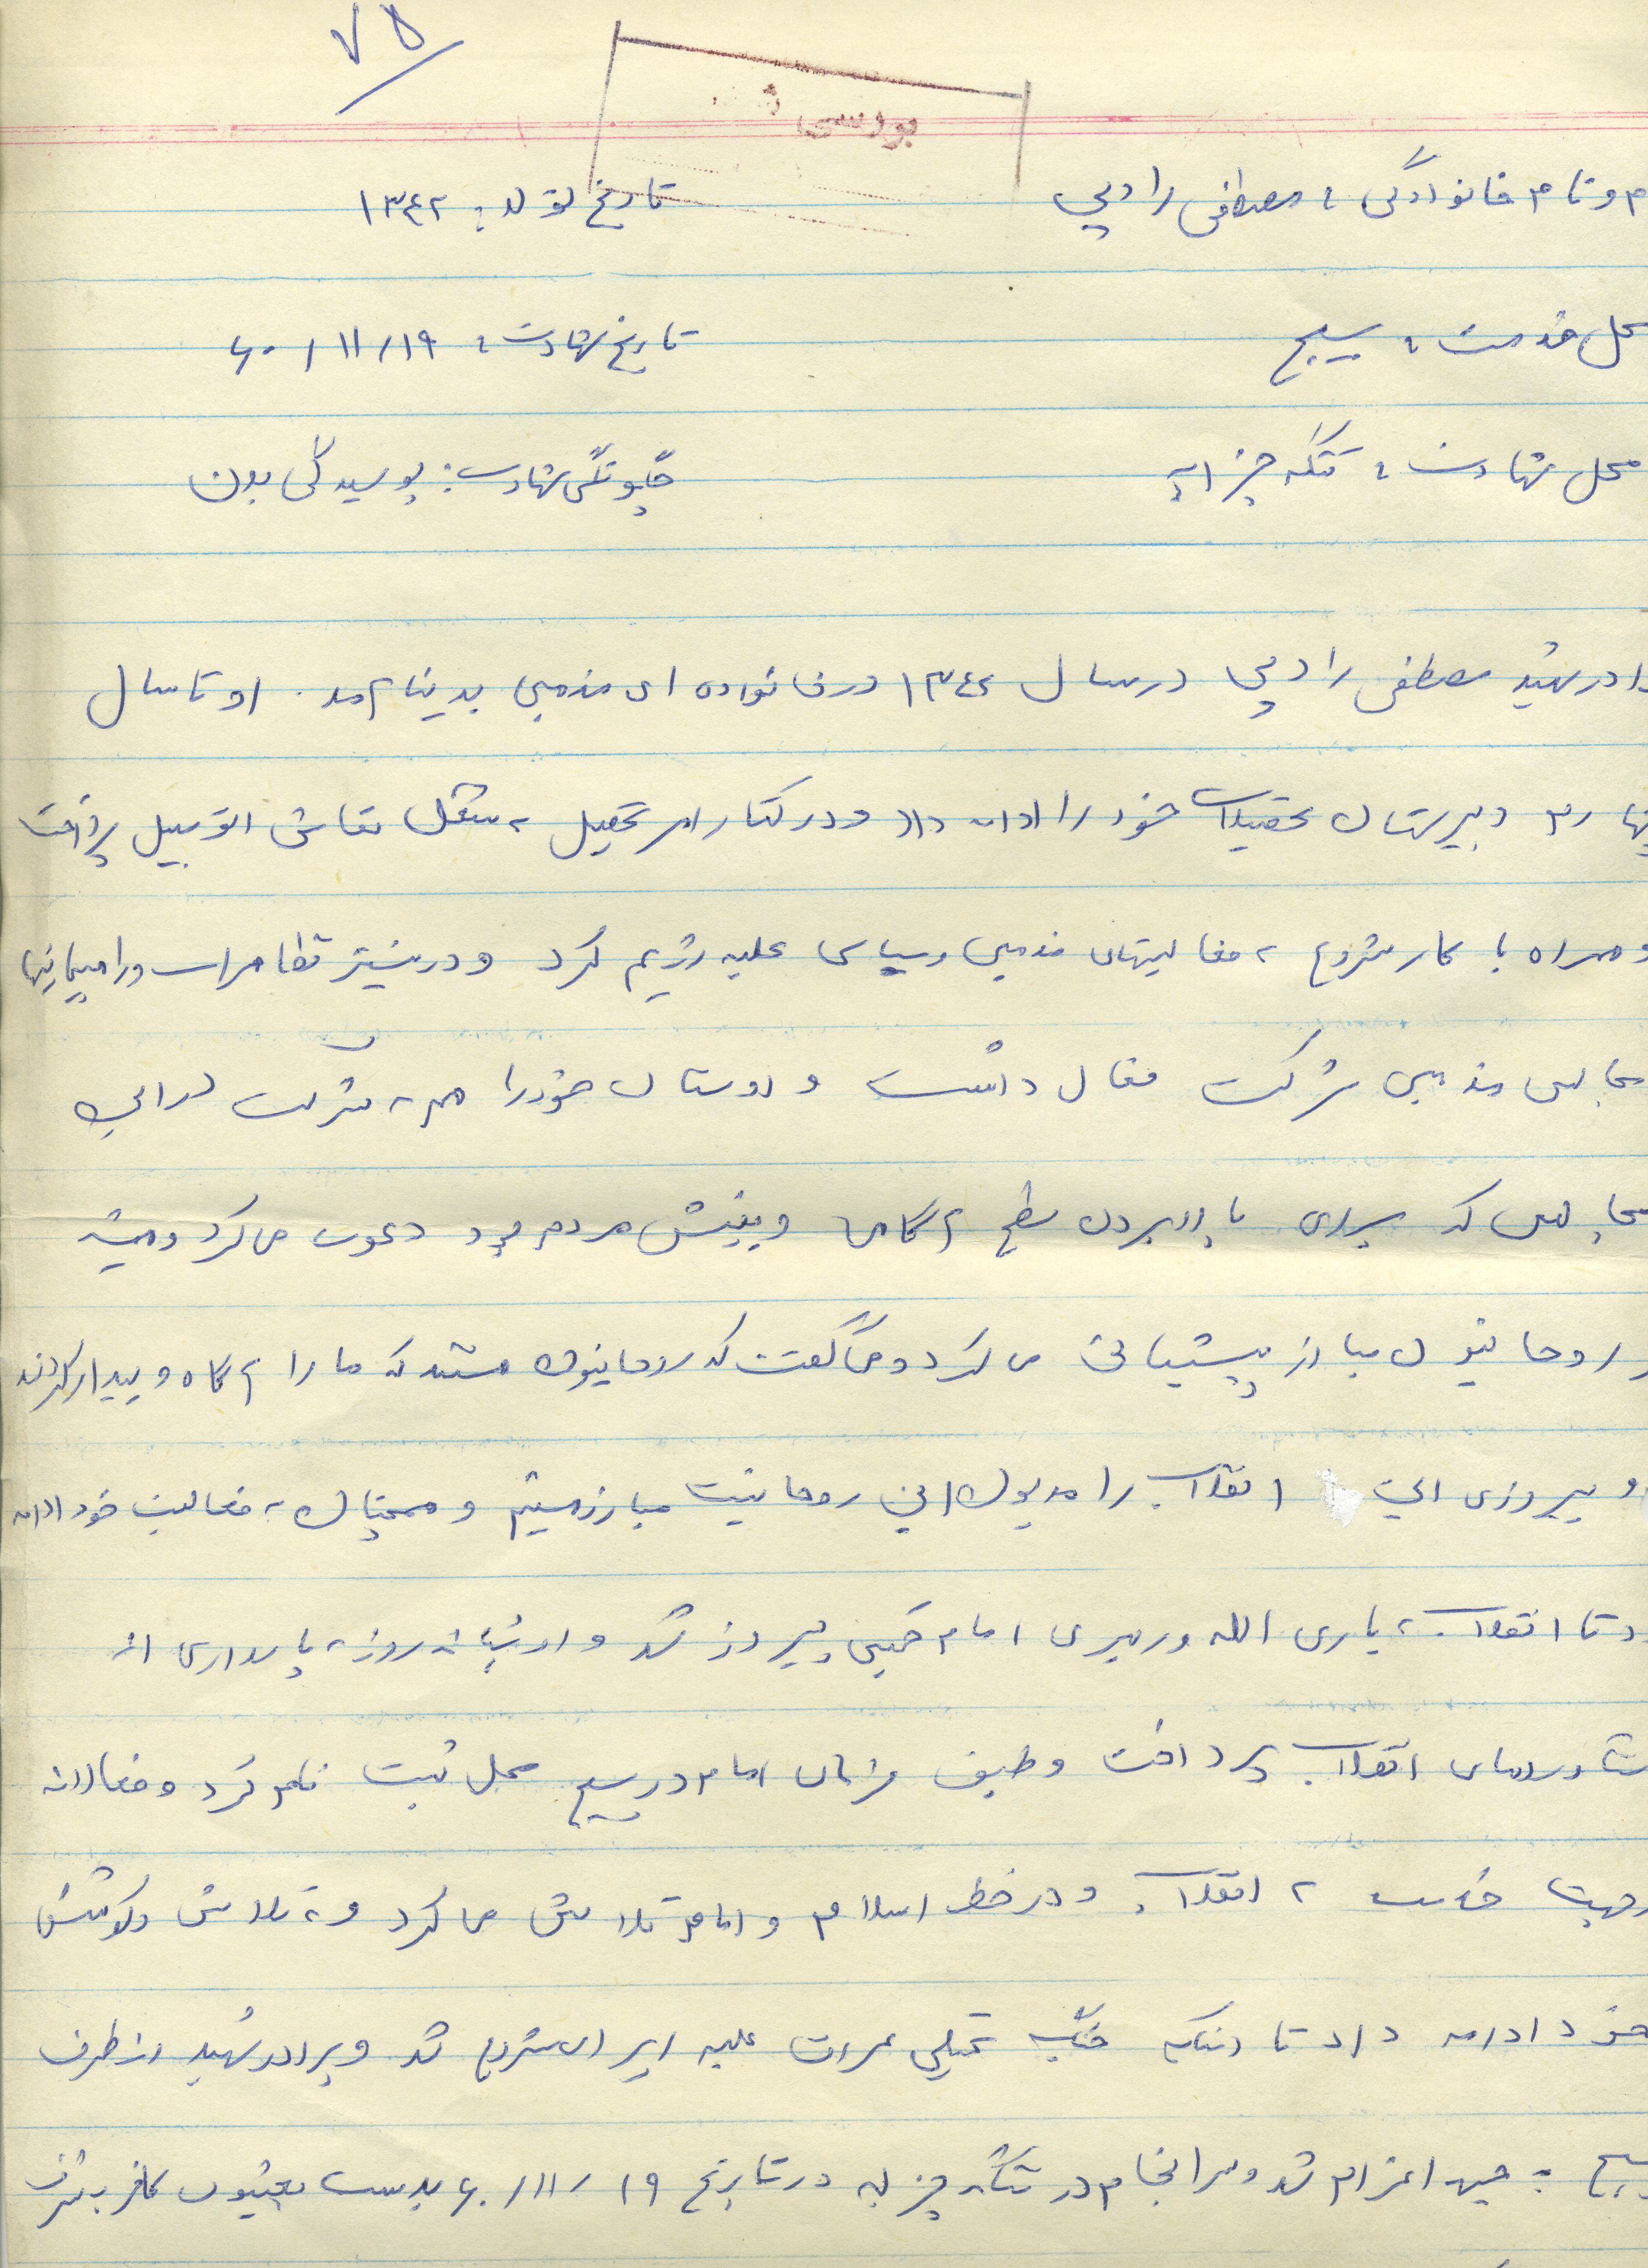 ۷۵
بررسی ش
م و نام خانوادگی: مصطفی رادپی تاریخ تولد: ۱۳۴۲
محل خدمت: بسیج تاریخ شهادت: ۶۰/۱۱/۱۹
محل شهادت: تنگه چزابه چگونگی شهادت: پوسیدگی بدن
برادر شهید مصطفی رادپی در سال ۱۳۴۲ در خانواده ای مذهبی بدنیا آمد. او تا سال
چهارم دبیرستان تحصیلات خود را ادامه داد و در کنار امر تحصیل به شغل نقاشی اتومبیل پرداخت
و همراه با کار شروع به فعالیتهای مذهبی و سیاسی علیه رژیم کرد و در بیشتر تظاهرات و راهپیمائیها
مجالس مذهبی شرکت فعال داشت و دوستان خود را هم به شرکت در این
مجالس که برای بالا بردن سطح آگاهی و بینش مردم بود دعوت می کرد و همیشه
از روحانیون مبارز پشتیبانی می کرد و می گفت که روحانیون هستند که ما را آگاه و بیدار کردند
و پیروزی این انقلاب را مدیون این روحانیت مبارز هستیم و همچنان به فعالیت خود ادامه
داد تا انقلاب به یاری الله و رهبری امام خمینی پیروز شد و او شبانه روز به پاسداری از
دستاوردهای انقلاب پرداخت و طبق فرمان امام در بسیج محل ثبت نام کرد و فعالانه
در جهت خدمت به انقلاب و در خط اسلام و امام تلاش می کرد و به تلاش و کوشش
خود ادامه داد تا اینکه جنگ تحمیلی عراق علیه ایران شروع شد و برادر شهید از طرف
بسیج به جبهه اعزام شد و سرانجام در تنگه چزابه در تاریخ ۶۰/۱۱/۱۹ بدست بعثیون کافر به شرف